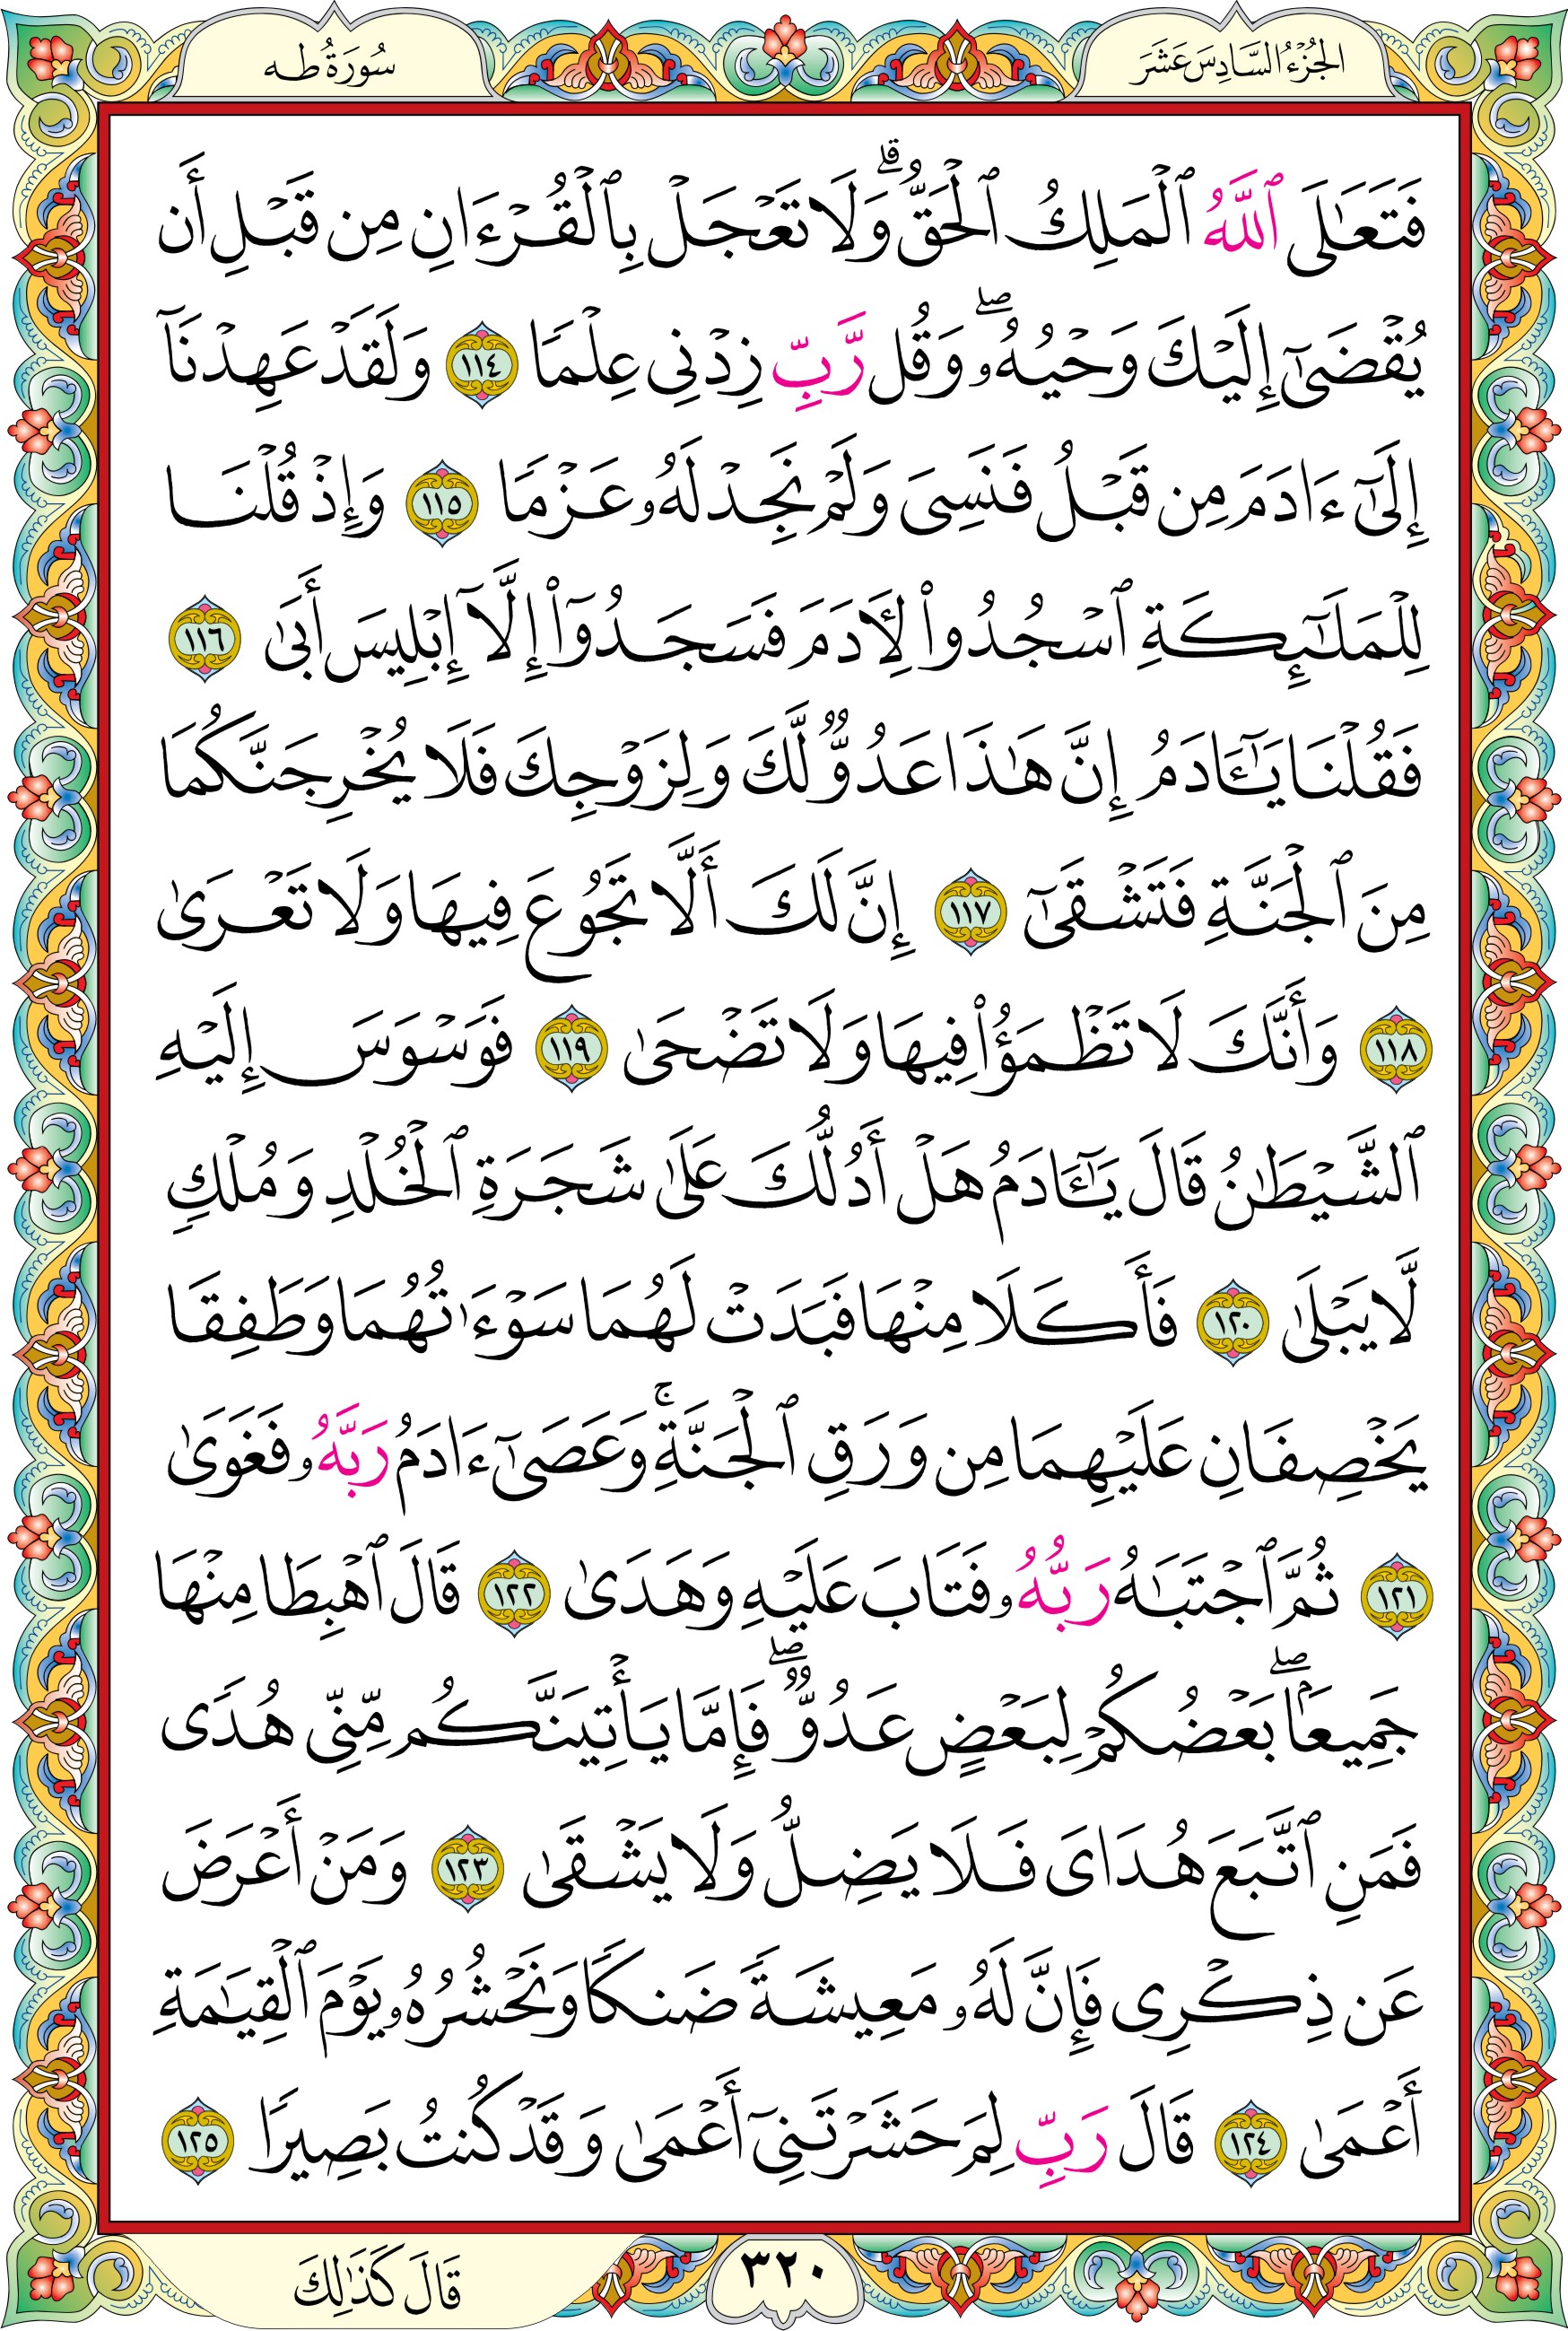 الجُزْءُ السَّادِسَ عَشَرَ
سُورَةُ طه
فَتَعَٰلَى ٱللَّهُ ٱلْمَلِكُ ٱلْحَقُّ ۗ وَلَا تَعْجَلْ بِٱلْقُرْءَانِ مِن قَبْلِ أَن
يُقْضَىٰٓ إِلَيْكَ وَحْيُهُۥ ۖ وَقُل رَّبِّ زِدْنِى عِلْمًا ١١٤ وَلَقَدْ عَهِدْنَآ
إِلَىٰٓ ءَادَمَ مِن قَبْلُ فَنَسِىَ وَلَمْ نَجِدْ لَهُۥ عَزْمًا ١١٥ وَإِذْ قُلْنَا
لِلْمَلَٰٓئِكَةِ ٱسْجُدُوا۟ لِـَٔادَمَ فَسَجَدُوٓا۟ إِلَّآ إِبْلِيسَ أَبَىٰ ١١٦
فَقُلْنَا يَٰٓـَٔادَمُ إِنَّ هَٰذَا عَدُوٌّ لَّكَ وَلِزَوْجِكَ فَلَا يُخْرِجَنَّكُمَا
مِنَ ٱلْجَنَّةِ فَتَشْقَىٰٓ ١١٧ إِنَّ لَكَ أَلَّا تَجُوعَ فِيهَا وَلَا تَعْرَىٰ
١١٨ وَأَنَّكَ لَا تَظْمَؤُا۟ فِيهَا وَلَا تَضْحَىٰ ١١٩ فَوَسْوَسَ إِلَيْهِ
ٱلشَّيْطَٰنُ قَالَ يَٰٓـَٔادَمُ هَلْ أَدُلُّكَ عَلَىٰ شَجَرَةِ ٱلْخُلْدِ وَمُلْكٍ
لَّا يَبْلَىٰ ١٢٠ فَأَكَلَا مِنْهَا فَبَدَتْ لَهُمَا سَوْءَٰتُهُمَا وَطَفِقَا
يَخْصِفَانِ عَلَيْهِمَا مِن وَرَقِ ٱلْجَنَّةِ ۚ وَعَصَىٰٓ ءَادَمُ رَبَّهُۥ فَغَوَىٰ
١٢١ ثُمَّ ٱجْتَبَٰهُ رَبُّهُۥ فَتَابَ عَلَيْهِ وَهَدَىٰ ١٢٢ قَالَ ٱهْبِطَا مِنْهَا
جَمِيعًۢا ۖ بَعْضُكُمْ لِبَعْضٍ عَدُوٌّ ۖ فَإِمَّا يَأْتِيَنَّكُم مِّنِّى هُدًى
فَمَنِ ٱتَّبَعَ هُدَاىَ فَلَا يَضِلُّ وَلَا يَشْقَىٰ ١٢٣ وَمَنْ أَعْرَضَ
عَن ذِكْرِى فَإِنَّ لَهُۥ مَعِيشَةً ضَنكًا وَنَحْشُرُهُۥ يَوْمَ ٱلْقِيَٰمَةِ
أَعْمَىٰ ١٢٤ قَالَ رَبِّ لِمَ حَشَرْتَنِىٓ أَعْمَىٰ وَقَدْ كُنتُ بَصِيرًا ١٢٥
٣٢٠
قَالَ كَذَٰلِكَ